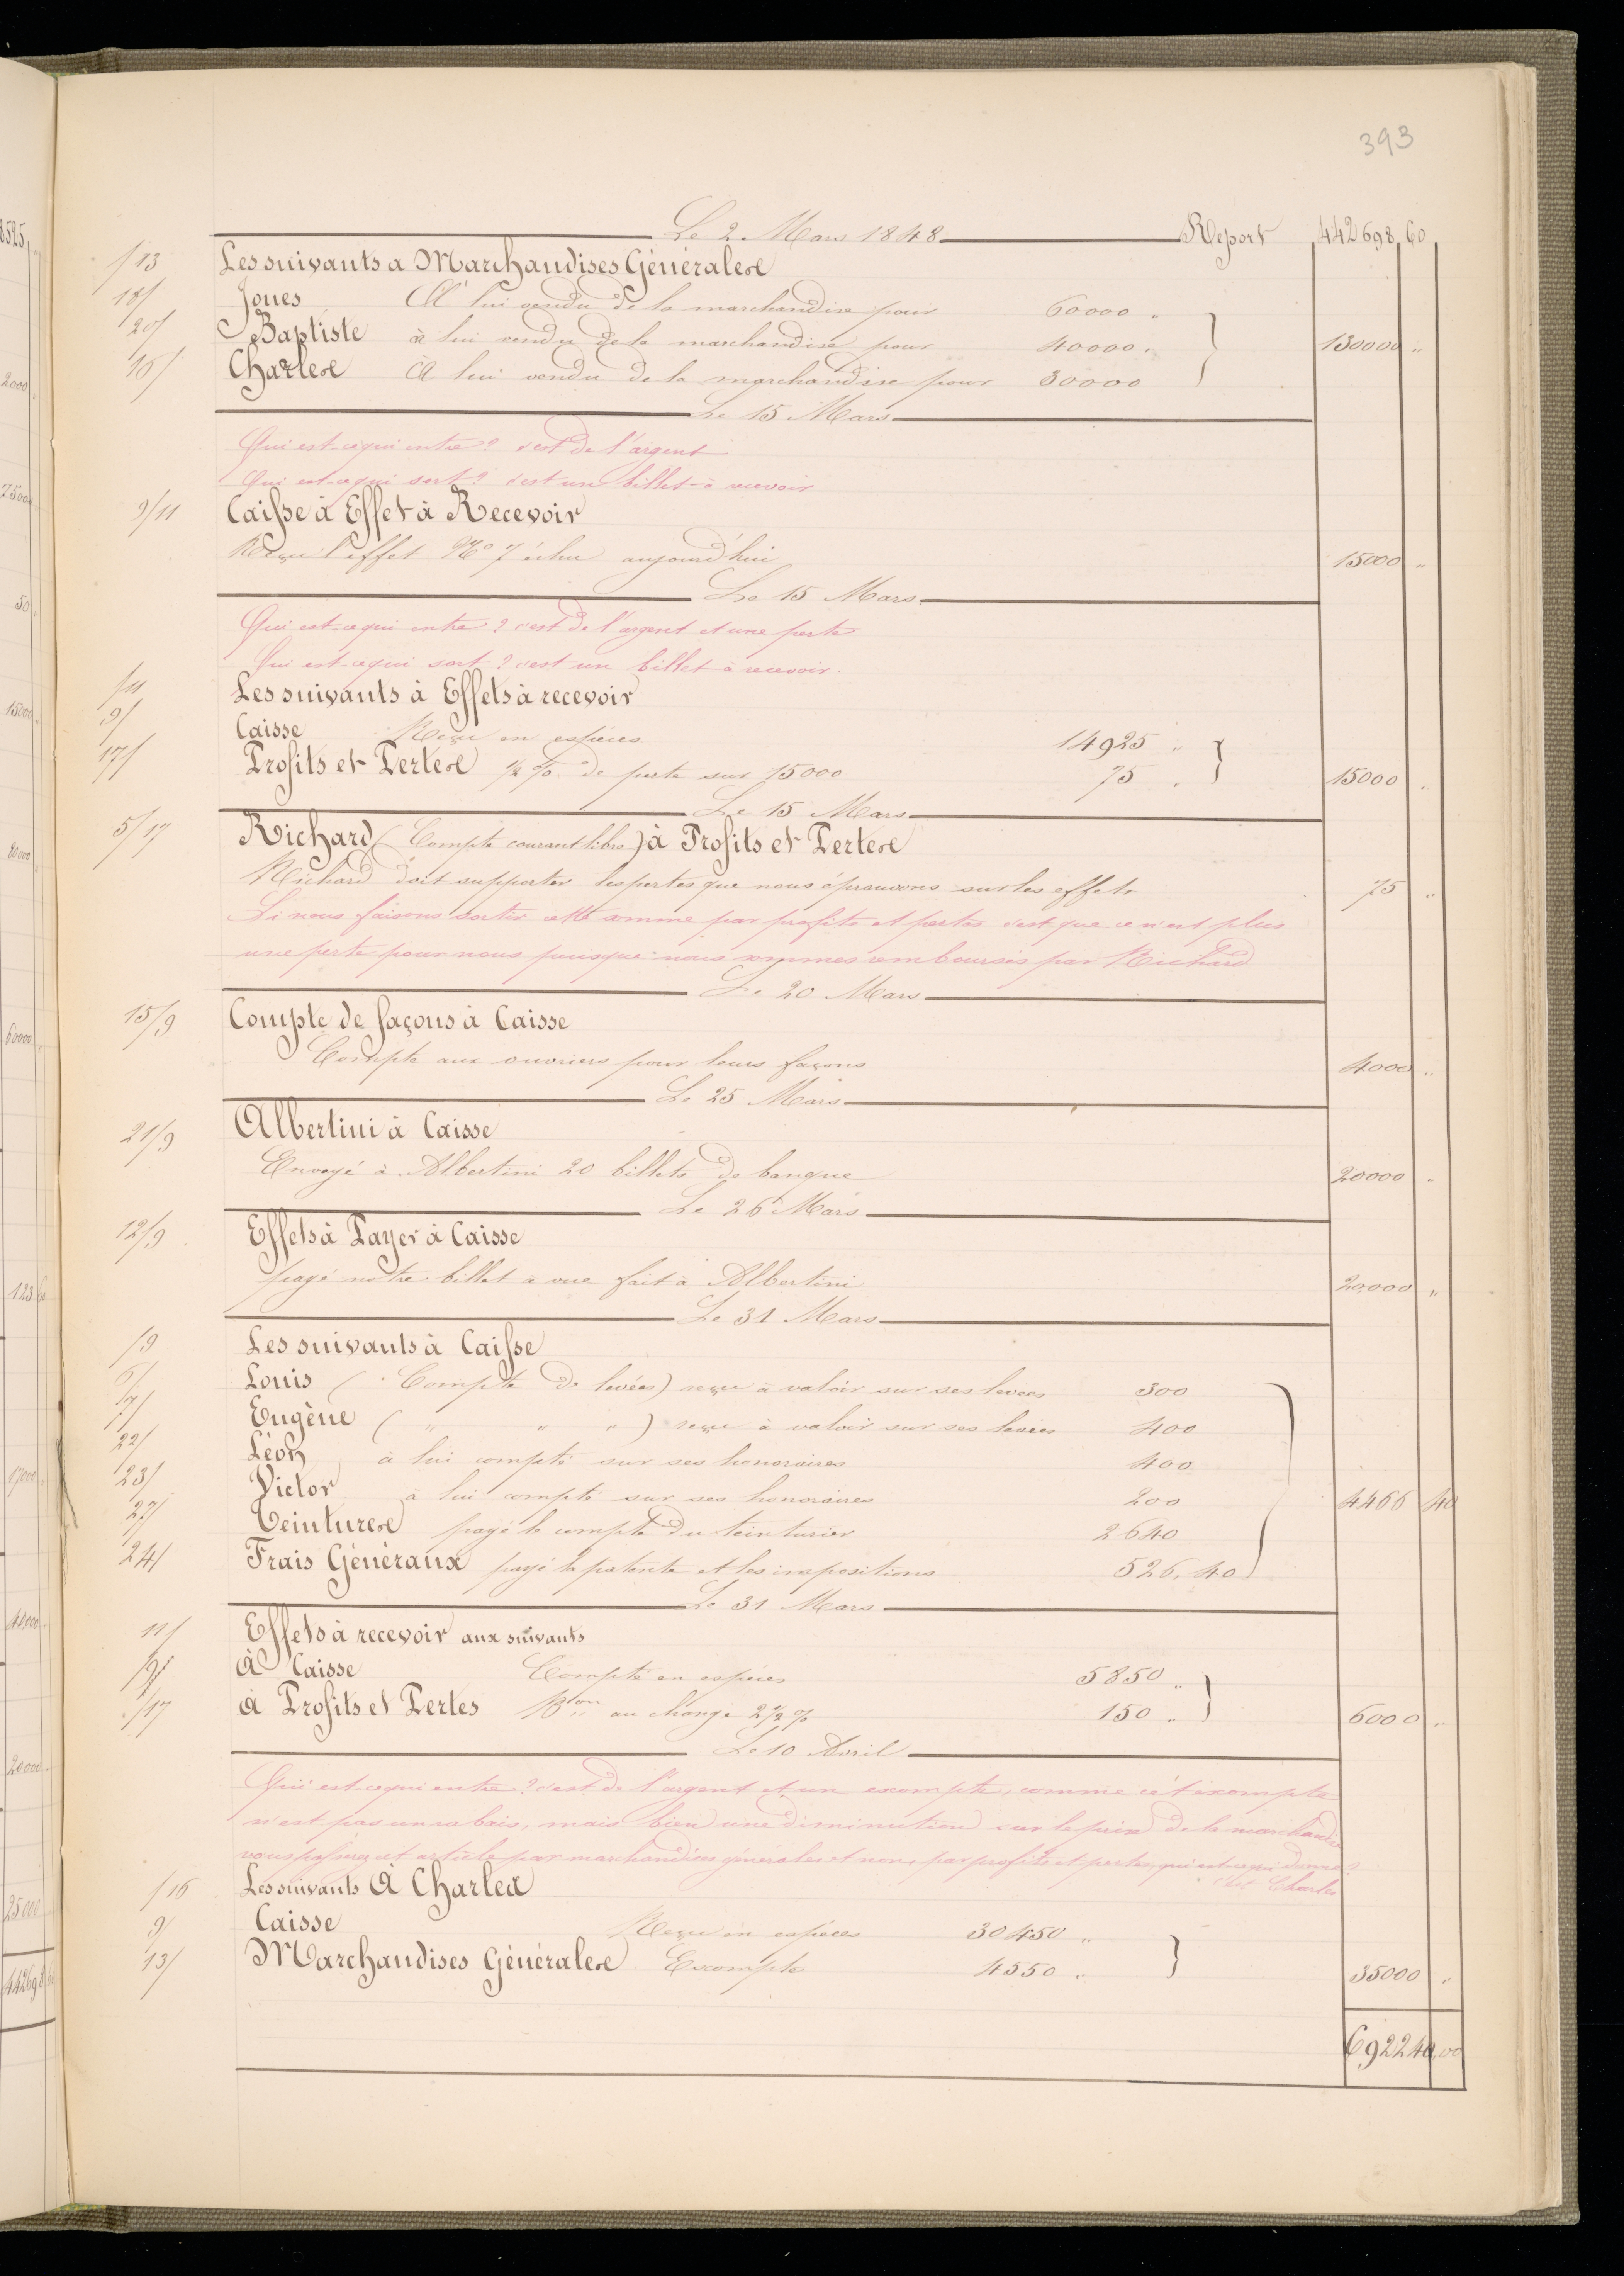 393
Le 2 Mars 1848 Report 442698,60
/13 Les suivants a Marchandises Générales
18/ Jones A lui vendu de la marchandise pour 60000 „
20/ Baptiste à lui vendu de la marchandise pour 40000 „ 130000 „
16/ Charles A lui vendu de la marchandise pour 30000
Le 15 Mars
Qui est-ce qui entre? c'est de l'argent
Qui est-ce qui sort? c'est un billet à recevoir
9/11 Caisse à Effet à Recevoir
Reçu l'effet No 7 échu aujourd'hui 15000 „
Le 15 Mars
Qui est-ce qui entre? c'est de l'argent et une perte
Qui est-ce qui sort? c'est un billet à recevoir.
/11 Les suivants à Effets à recevoir
9/ Caisse Reçu en espèces 14925 „
17/ Profits et Pertes ½ % de perte sur 15000 75 „ 15000 „
Le 15 Mars
5/17 Richard (Compte courant libre) à Profits et Pertes
Richard doit supporter les pertes que nous éprouvons sur les effets 75 „
Si nous faisons sortir cette somme par profits et pertes c'est que ce n'est plus
une perte pour nous puisque nous sommes remboursés par Richard
Le 20 Mars
15/9 Compte de façons à Caisse
Compté aux ouvriers pour leurs façons 4000 „
Le 25 Mars
21/9 Albertini à Caisse
Envoyé à Albertini 20 billets de banque 20000 „
Le 26 Mars
12/9 Effets à Payer à Caisse
payé notre billet à vue fait à Albertini 20,000 „
Le 31 Mars
/9 Les suivants à Caisse
6/ Louis (Compte de levées) reçu à valoir sur ses levées 300
7/ Eugène ( „ „ „ ) reçu à valoir sur ses levées 400
22/ Léon à lui compté sur ses honoraires 400
23/ Victor à lui compté sur ses honoraires 200 4466 40
27/ Teintures payé le compte du teinturier 2640
24/ Frais Généraux payé la patente et les impositions 526,40
Le 31 Mars
11/ Effets à recevoir aux suivants
/9 À Caisse Compté en espèces 5850 „
/17 à Profits et Pertes Bon au change 2 ½ % 150 „ 6000 „
Le 10 Avril
Qui est-ce qui entre? c'est de l'argent et un escompte, comme cet escompte
n'est pas un rabais, mais bien une diminution sur le prix de la marchandise
vous passerez cet article par marchandises générales et non, par profits et pertes, qui est-ce qui donne?
c'est Charles
/16 Les suivants À Charles
9/ Caisse Reçu en espèces 30450 „
13/ Marchandises Générales Escompte 4550 „ 35000 „
692240,00